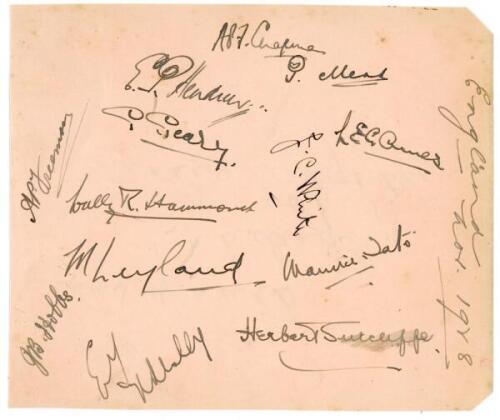 A.P.F. Chapman
G. Mead
E.P. Hendren
G. Geary
L.E.G. Ames
J.C. White
A.P. Freeman
Wally R. Hammond
M Leyland
Maurice Tate
JB Hobbs.
Herbert Sutcliffe
England
Nov. 1928